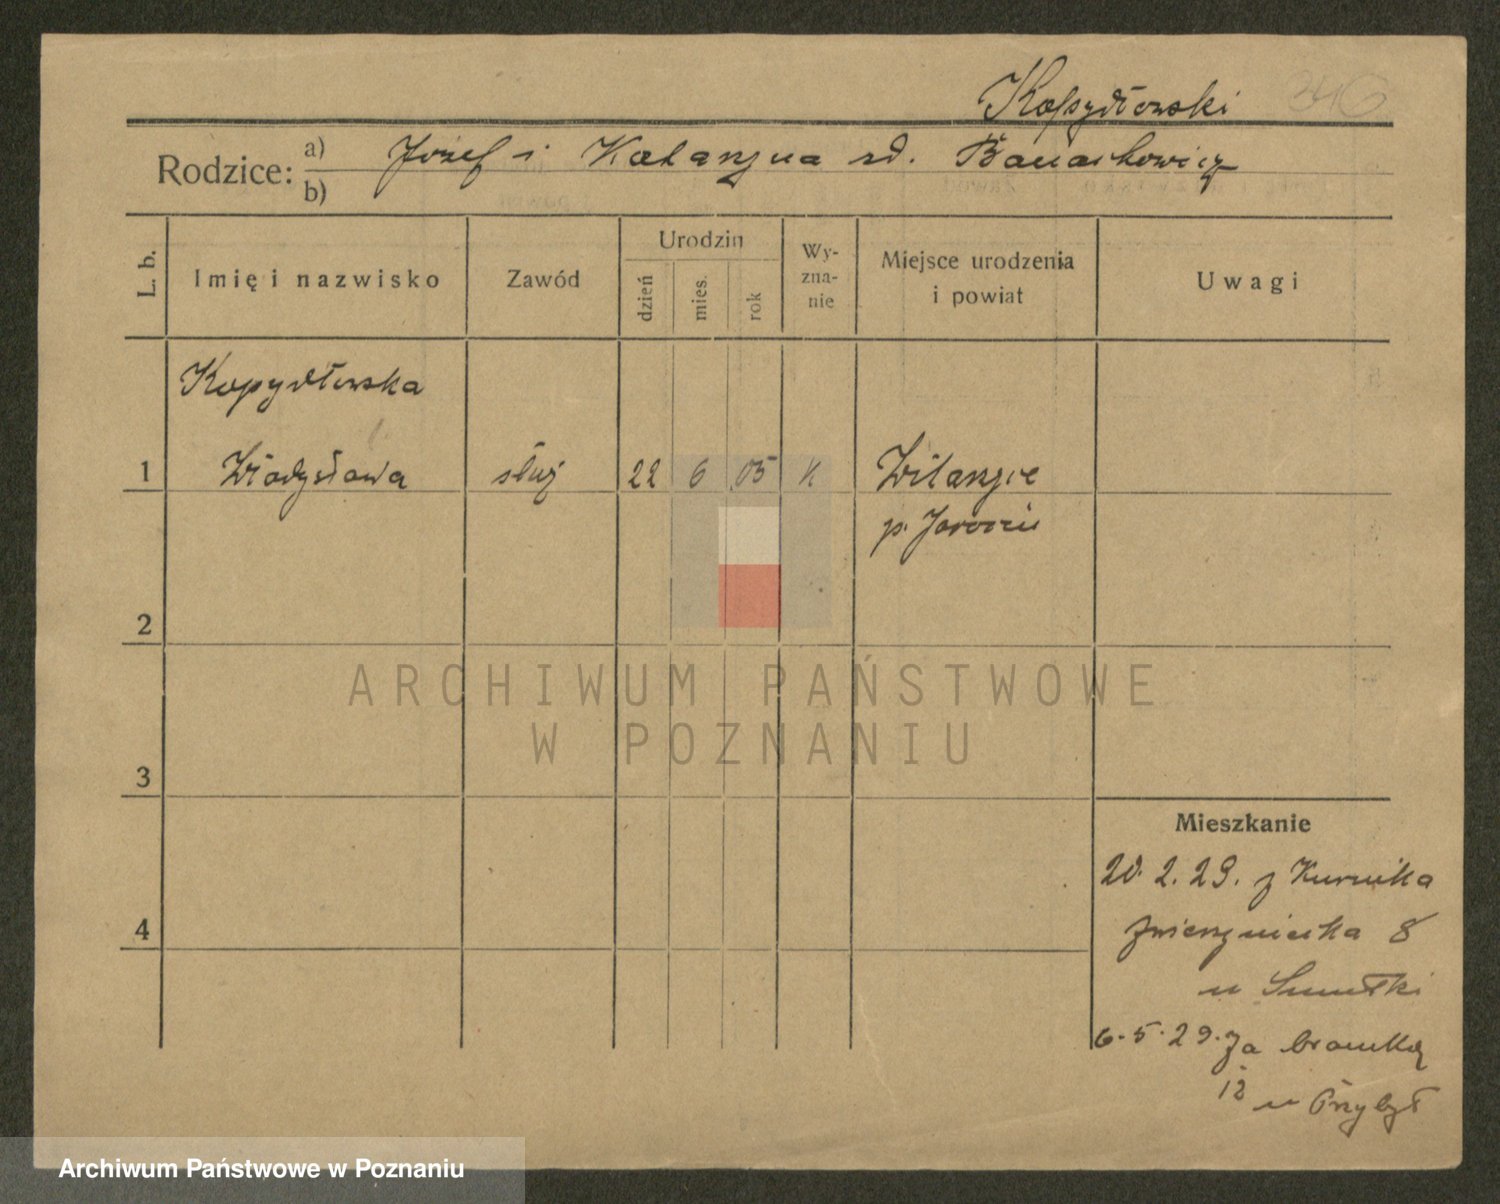 Kopydłowski 346
Rodzice: a) b) Józef i Katarzyna rd. Banachowicz
L. b.
Imię i nazwisko
Zawód
Urodzin
dzień
mies.
rok
Wy-
zna-
nie
Miejsce urodzenia
i powiat
Uwagi
Kopydłowska
1 Władysława służ 22 6 05 K Witaszyce
p. Jarocin
2
3
4
Mieszkanie
20. 2. 29. z Kurnika
Zwierzyniecka 8
u Smułki
6. 5. 29. Za bramką
12 u Przybył
ARCHIWUM PAŃSTWOWE
W POZNANIU
Archiwum Państwowe w Poznaniu